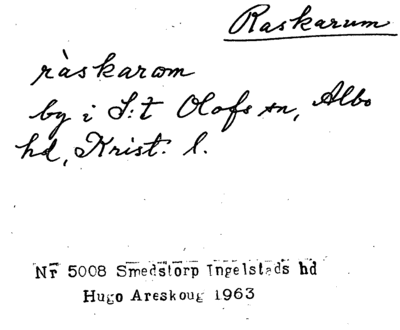 Raskarum
ràskarɷm
by i S:t Olofs sn, Albo
hd, Krist. l.
Nr 5008 Smedstorp Ingelstads hd
Hugo Areskoug 1963